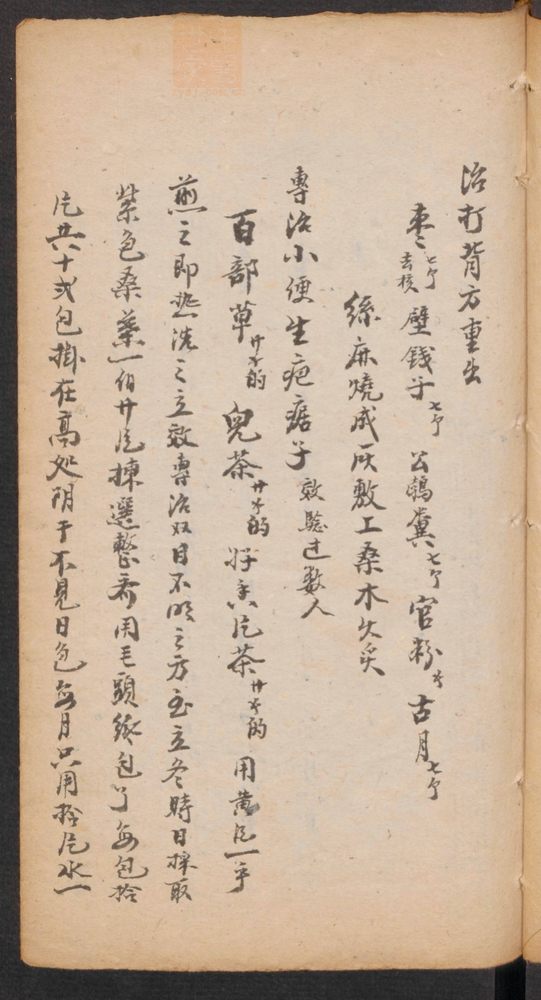 治打背方重出
枣七个去核 壁錢子七个 公鴿糞七个 官粉 古月七个
絲麻燒成灰敷上桑木火炙
專治小便生疤瘩子 效驗过数人
百部草廿文的 兒茶廿文的 好香片茶廿文的 用黃 一
煎之即 洗之立效專治双目不明之方 立冬時日採取
紫色桑葉一佰廿片揀選整齊用毛頭纸包了每包拾
片共十弍包掛在高处阴干不見日色每月只用拾片水一